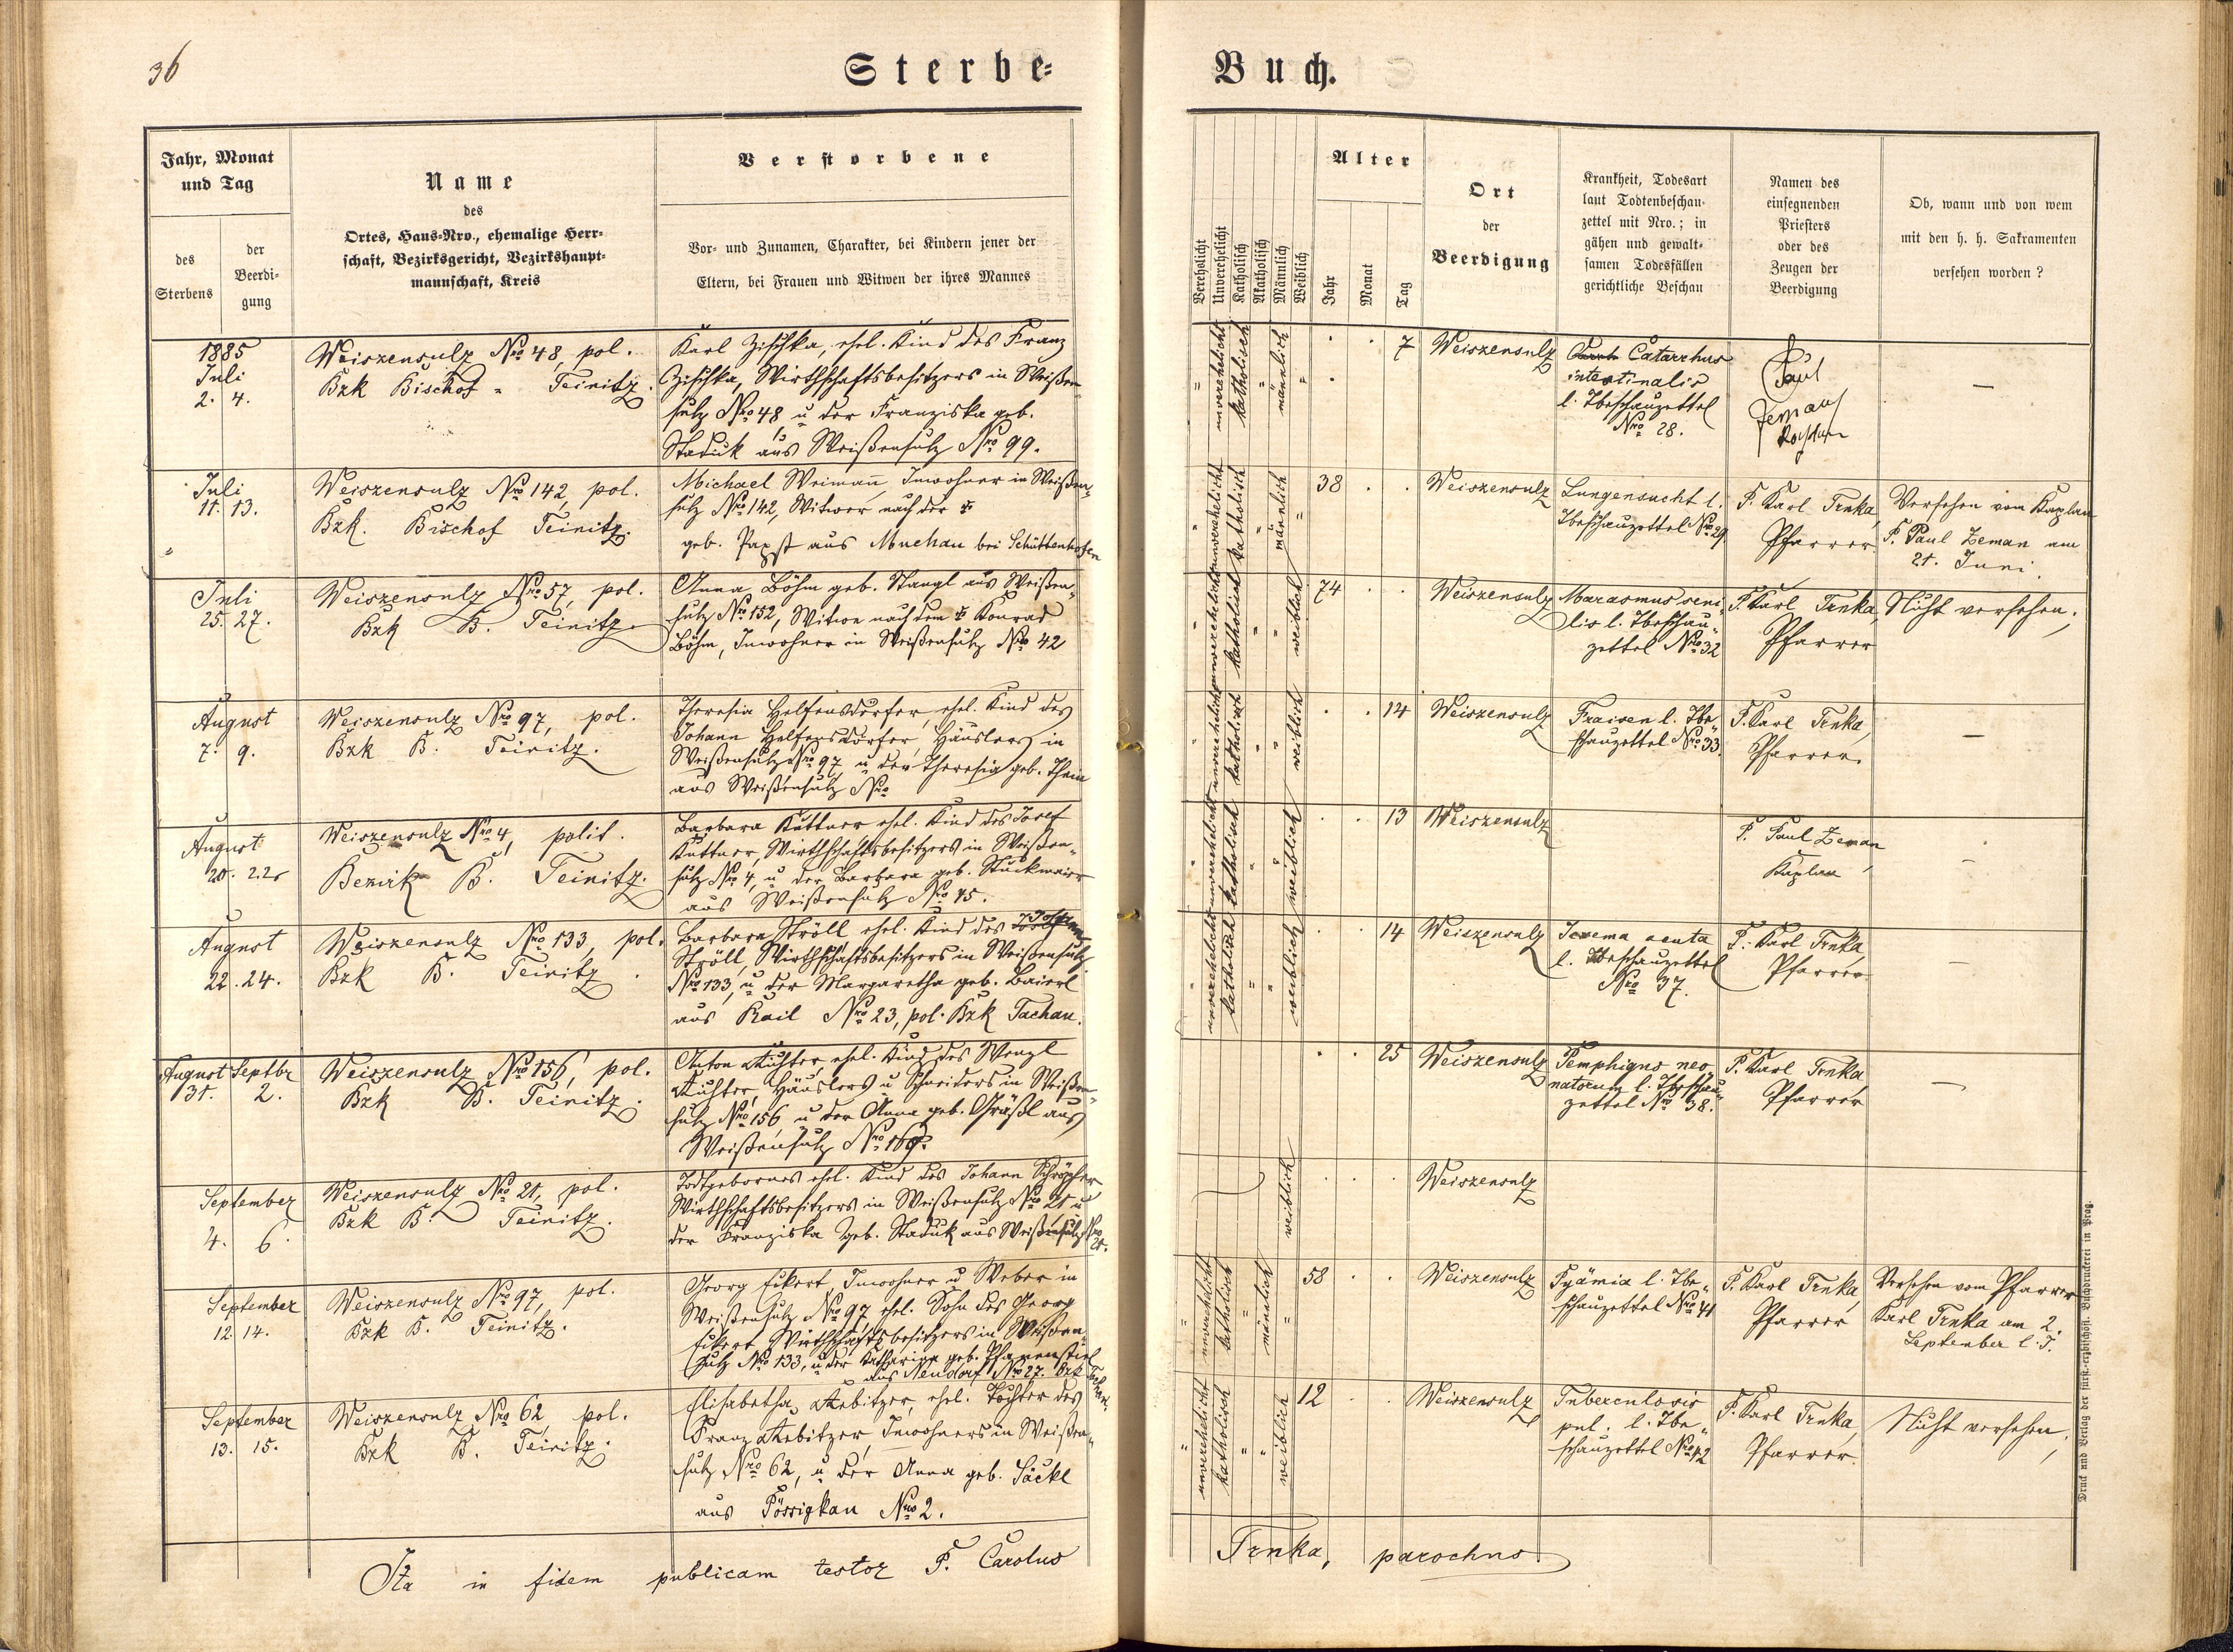 36
Sterbe-
Buch.
Jahr, Monat
und Tag
des
Sterbens
der
Beerdi-
gung
Name
des
Ortes, Haus-Nro., ehemalige Herr-
schaft, Bezirksgericht, Bezirkshaupt-
mannschaft, Kreis
Verstorbene
Vor- und Zunamen, Charakter, bei Kindern jener der
Eltern, bei Frauen und Witwen der ihres Mannes
Verehelicht
Unverehelicht
Katholisch
Akatholisch
Männlich
Weiblich
Alter
Jahr
Monat
Tag
Ort
der
Beerdigung
Krankheit, Todesart
laut Todtenbeschau-
zettel mit Nro.; in
gähen und gewalt-
samen Todesfällen
gerichtliche Beschau
Namen des
einsegnenden
Priesters
oder des
Zeugen der
Beerdigung
Ob, wann und von wem
mit den h. h. Sakramenten
versehen worden?
1885
Juli
2. 4.
Weiszensulz Nro 48, pol.
Bzk Bischof-Teinitz.
Karl Zischka, ehel. Kind des Franz
Zischka, Wirthschaftsbesitzers in Weißen-
sulz Nro 48 u der Franziska geb.
aus Weißensulz Nro 99.
unverehelicht
katholisch
männlich
7
Weiszensulz
Catarrhus
intestinalis
l. Tbeschauzettel
Nro 28.
Paul
Zeman
—
Juli
11. 13.
Weiszensulz Nro 142, pol.
Bzk. Bischof Teinitz.
Michael Weimann, Inwohner in Weißen-
sulz Nro 142, Witwer nach der †
geb. Papst aus Muchau bei Schüttenhofen
unverehelicht
katholisch
männlich
38
Weiszensulz
Lungensucht l.
Tbeschauzettel Nro 29.
P. Karl Trnka,
Pfarrer
Versehen vom Kaplan
P. Paul Zeman am
21. Juni.
Juli
25. 27.
Weiszensulz Nro 57, pol.
Bzk B. Teinitz.
Anna Böhm geb. Stangl aus Weißen-
sulz Nro 152, Witwe nach dem † Konrad
Böhm, Inwohner in Weißensulz Nro 42
unverehelicht
katholisch
weiblich
74
Weiszensulz
Marasmus seni-
lis l. Tbeschau-
zettel Nro 32
P. Karl Trnka,
Pfarrer
Nicht versehen.
August
7. 9.
Weiszensulz Nro 97, pol.
Bzk B. Teinitz.
Theresia Helfensdorfer, ehel. Kind des
Johann Helfensdorfer, Häuslers in
Weißensulz Nro 97 u der Theresia geb.
aus Weißensulz Nro
unverehelicht
katholisch
weiblich
14
Weiszensulz
Fraisen l. Tbe-
schauzettel Nro 33.
P. Karl Trnka,
Pfarrer.
—
August
20. 22.
Weiszensulz Nro 4, polit.
Bezirk B. Teinitz.
Barbara Kuttner ehel. Kind des Josef
Kuttner, Wirthschaftsbesitzers in Weißen-
sulz Nro 4, u der Barbara geb.
aus Weißensulz Nro 45.
unverehelicht
katholisch
weiblich
13
Weiszensulz
P. Paul Zeman
Kaplan
—
August
22. 24.
Weiszensulz Nro 133, pol.
Bzk B. Teinitz.
Barbara Ströll, ehel. Kind des
Ströll, Wirthschaftsbesitzers in Weißensulz
Nro 133, u der Margaretha geb. Baierl
aus Hail Nro 23, pol. Bzk Tachau.
unverehelicht
katholisch
weiblich
14
Weiszensulz
acuta
l. Tbeschauzettel
Nro 37.
P. Karl Trnka,
Pfarrer.
—
August Septbr
31. 2.
Weiszensulz Nro 156, pol.
Bzk B. Teinitz.
Anton Richter, ehel. Kind des Wenzl
Richter, Häuslers u Schneiders in Weißen-
sulz Nro 156, u der Anna geb. Gräßl aus
Weißensulz Nro
25
Weiszensulz
Pemphigus neo-
natorum l. Tbeschau-
zettel Nro 38.
P. Karl Trnka
Pfarrer
—
September
4. 6.
Weiszensulz Nro 21, pol.
Bzk B. Teinitz.
Todtgebornes ehel. Kind des Johann Schröpfer
Wirthschaftsbesitzers in Weißensulz Nro 21 u
der Franziska geb. aus Weißensulz Nro
21.
weiblich
Weiszensulz
September
12. 14.
Weiszensulz Nro 97, pol.
Bzk B. Teinitz.
Georg Eikert, Inwohner u Weber in
Weißensulz Nro 97, ehel. Sohn des Georg
Eikert, Wirthschaftsbesitzers in Weißen-
sulz Nro 133, u der Katharina geb.
aus Neudorf Nro 27. Bzk
unverehelicht
katholisch
männlich
58
Weiszensulz
Pyämia l. Tbe-
schauzettel Nro 41
P. Karl Trnka,
Pfarrer
Versehen vom Pfarrer
Karl Trnka am 2.
September l. J.
September
13. 15.
Weiszensulz Nro 62, pol.
Bzk B. Teinitz.
Elisabetha Rebitzer, ehel. Tochter des
Franz Rebitzer Inwohners in Weißen-
sulz Nro 62, u der Anna geb. Säckl
aus Pössigkau Nro 2.
unverehelicht
katholisch
weiblich
12
Weiszensulz
Tuberculosis
pul. l. Tbe-
schauzettel Nro 42
P. Karl Trnka,
Pfarrer.
Nicht versehen.
Ita in fidem publicam testor P. Carolus
Trnka, parochus
Druck und Verlag der fürst.-erzbischöfl. Buchdruckerei in Prag.